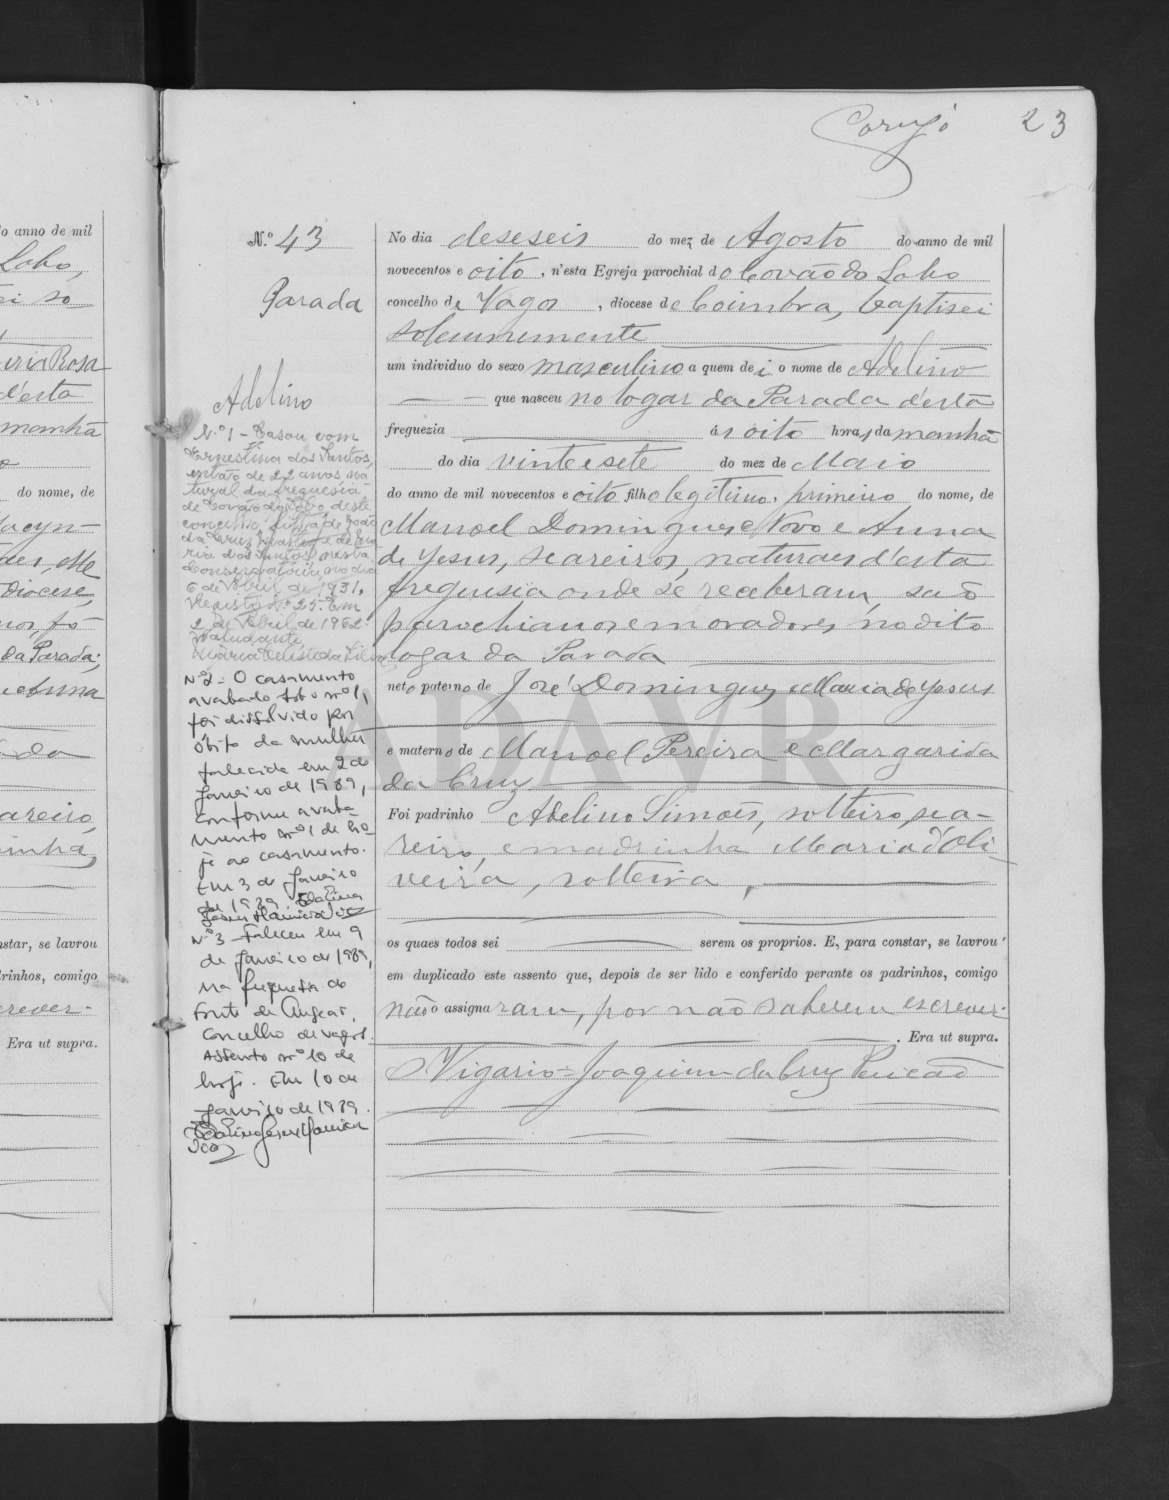 Corujo 23
Nº 43
Parada
Adelino
No dia deseseis do mez de Agosto do anno de mil
novecentos e oito, n'esta Egreja parochial do Covão do Lobo
concelho de Vagos, diocese de Coimbra, baptisei
solemnemente
um individuo do sexo masculino a quem dei o nome de Adelino
que nasceu no logar da Parada d'esta
freguezia ás oito horas da manhã
do dia vinte e sete do mez de Maio
do anno de mil novecentos e oito filho legitimo, primeiro do nome, de
Manoel Domingues Novo e Anna
de Jesus, seareiros, naturaes d'esta
freguesia onde se receberam, são
parochianos e moradores no dito
logar da Parada
neto paterno de José Domingues e Maria de Jesus
e materno de Manoel Pereira e Margarida
da Cruz
Foi padrinho Adelino Simões, solteiro, sea-
reiro, e madrinha Maria d'Oli-
veira, solteira,
os quaes todos sei serem os proprios. E, para constar, se lavrou
em duplicado este assento que, depois de ser lido e conferido perante os padrinhos, comigo
não o assignaram, por não saberem escrever.
Era ut supra.
O Vigario = Joaquim da Cruz
N.º 1 - Casou com
Ernestina dos Santos,
então de 22 anos na
tural da freguesia
de Covão do Lobo, deste
concelho, filha de João
da Cruz e de
ria dos Santos, nesta
Conservatória, no dia
6 de Abril de 1931.
Registo Nº 25. Em
2 de Abril de 1962.
O Ajudante,
Maria da Silva
Nº 2 - O casamento
averbado sob o nº 1,
foi dissolvido por
óbito da mulher
falecida em 2 de
Janeiro de 1989,
conforme averba-
mento nº 1 de ho-
je ao casamento.
Em 3 de Janeiro
de 1989.
Nº 3 - Faleceu em 9
de Janeiro de 1989,
na freguesia de
Fonte de Angeão,
concelho de Vagos.
Assento nº 10 de
hoje. Em 10 de
Janeiro de 1989.
ADAVR
o anno de mil
Lobo,
Rosa
d'esta
manhã
do nome, de
Diocese,
da Parada;
Anna
areiro,
inha,
nstar, se lavrou
drinhos, comigo
crever.
Era ut supra.